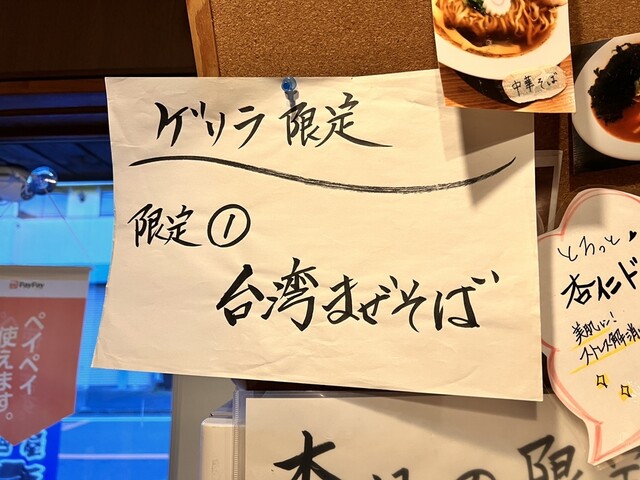 ゲリラ限定
限定①
台湾まぜそば
中華そば
とろっと
杏仁ド
美肌に!
ストレス解消
PayPay
ペイペイ
使えます。